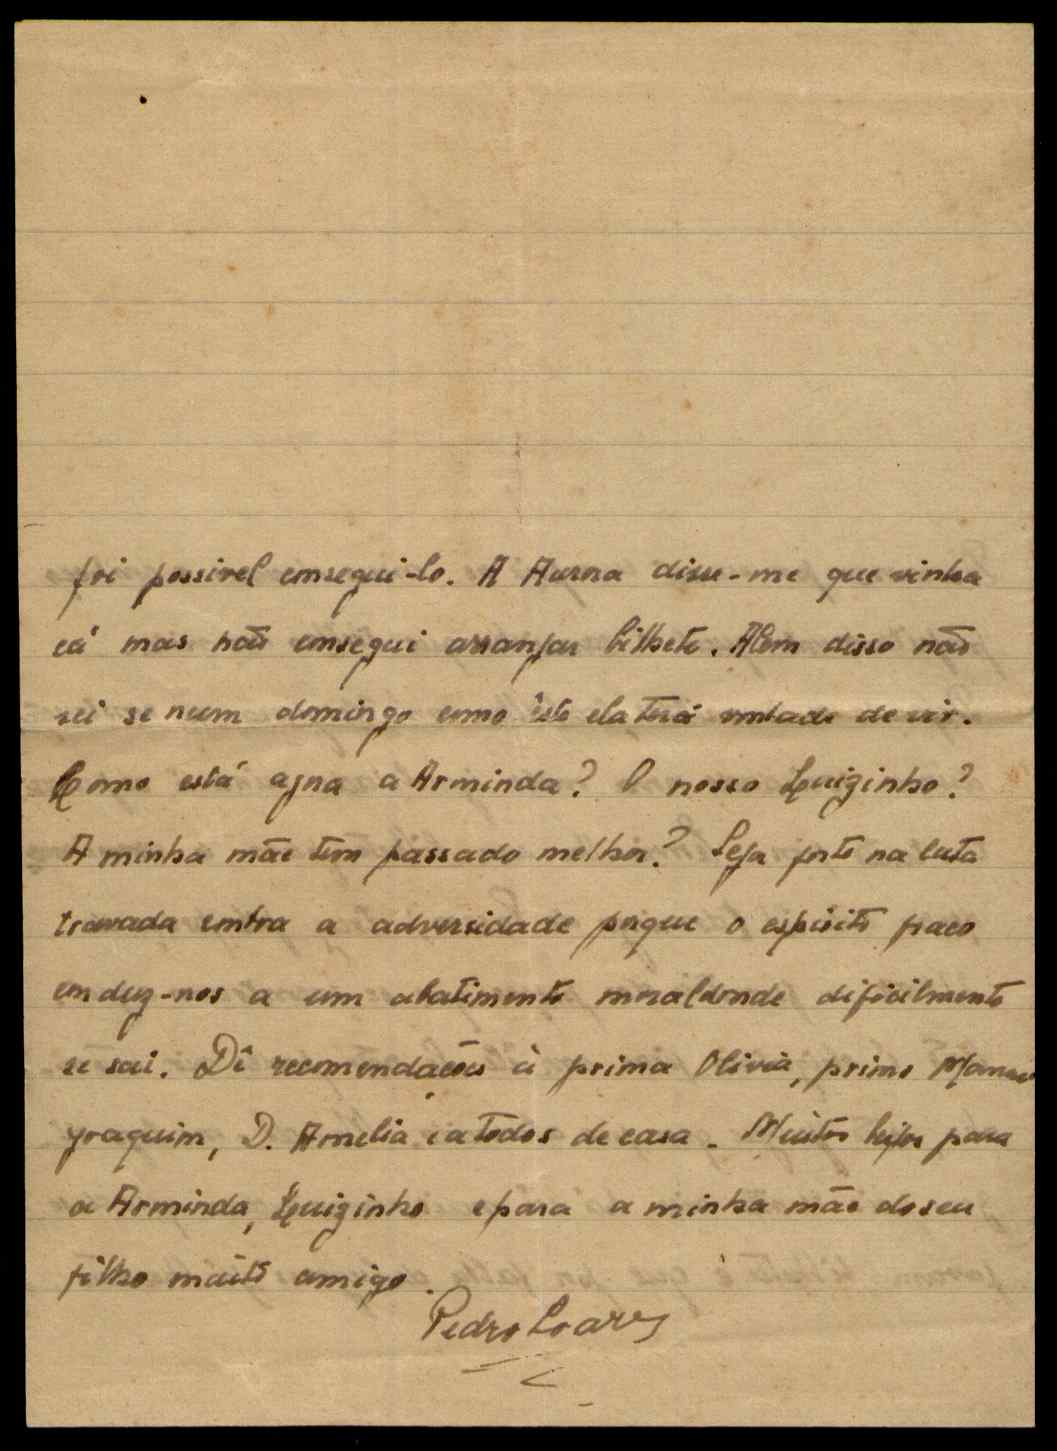 foi possivel consegui-lo. A Aurora disse-me que vinha
cá mas não consegui arranjar bilhete. Alem disso não
sei se num domingo como êste ela terá vontade de vir.
Como está agora a Arminda? O nosso Luizinho?
A minha mãe tem passado melhor? Seja forte na luta
travada contra a adversidade porque o espirito fraco
conduz-nos a um abatimento moral donde dificilmente
se sai. Dê recomendações à prima Olivia, primo Manuel
Joaquim, D. Amelia e a todos de casa. Muitos beijos para
a Arminda, Luizinho e para a minha mãe do seu
filho muito amigo.
Pedro Soares